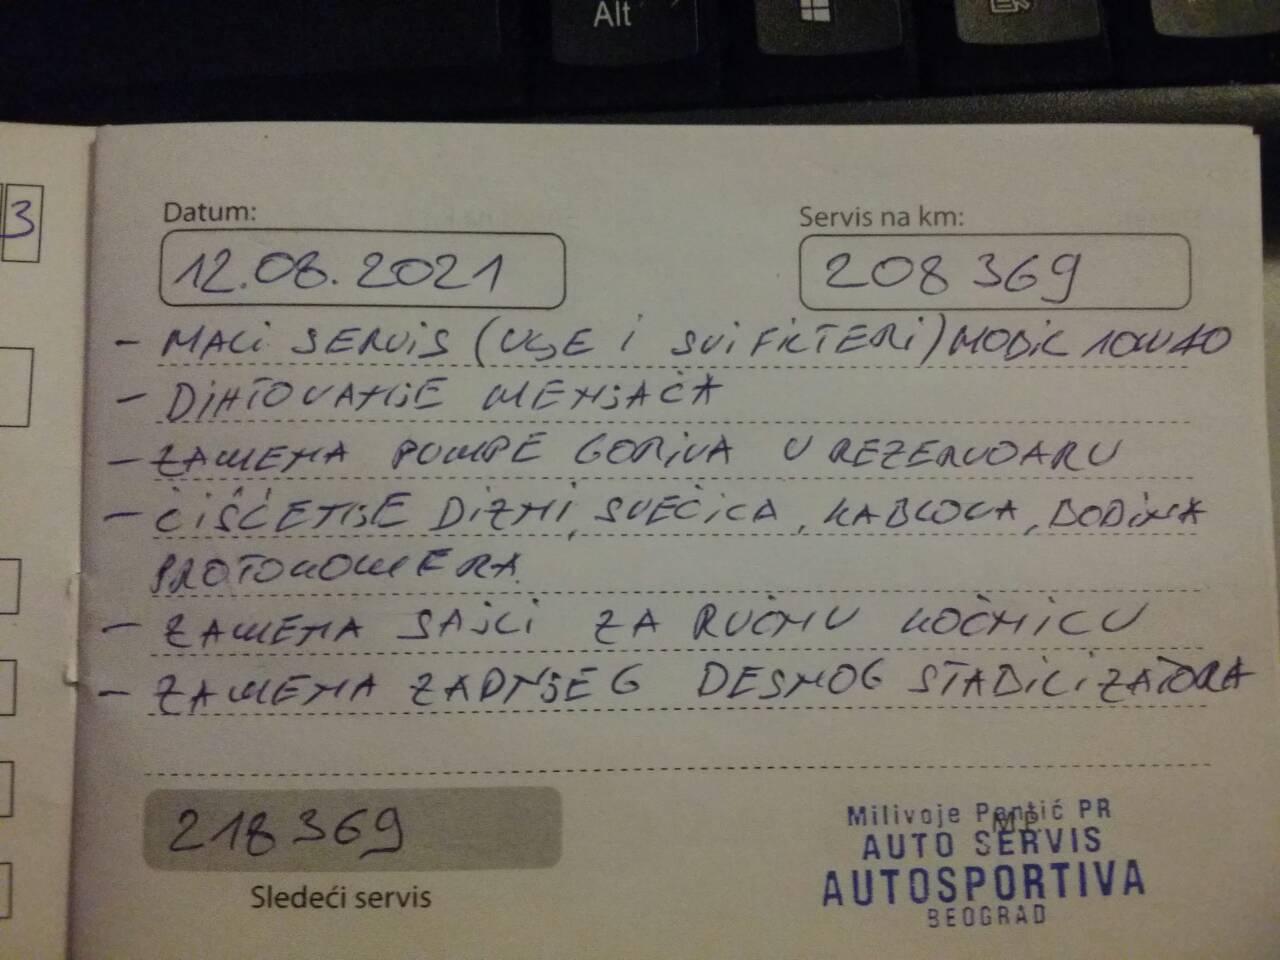 Alt
3
Datum:
Servis na km:
12.08.2021
208 369
- MALI SERVIS (ULJE I SVI FILTERI) MOBIL 10W40
- DIHTOVANJE MENJAČA
- ZAMENA PUMPE GORIVA U REZERVOARU
- ČIŠĆENJE DIZNI, SVEĆICA, KABLOVA, BOBINA
PROTOKOMERA
- ZAMENA SAJLI ZA RUČNU KOČNICU
- ZAMENA ZADNJEG DESNOG STABILIZATORA
218 369
Sledeći servis
Milivoje Pentić PR
M.P.
AUTO SERVIS
AUTOSPORTIVA
BEOGRAD